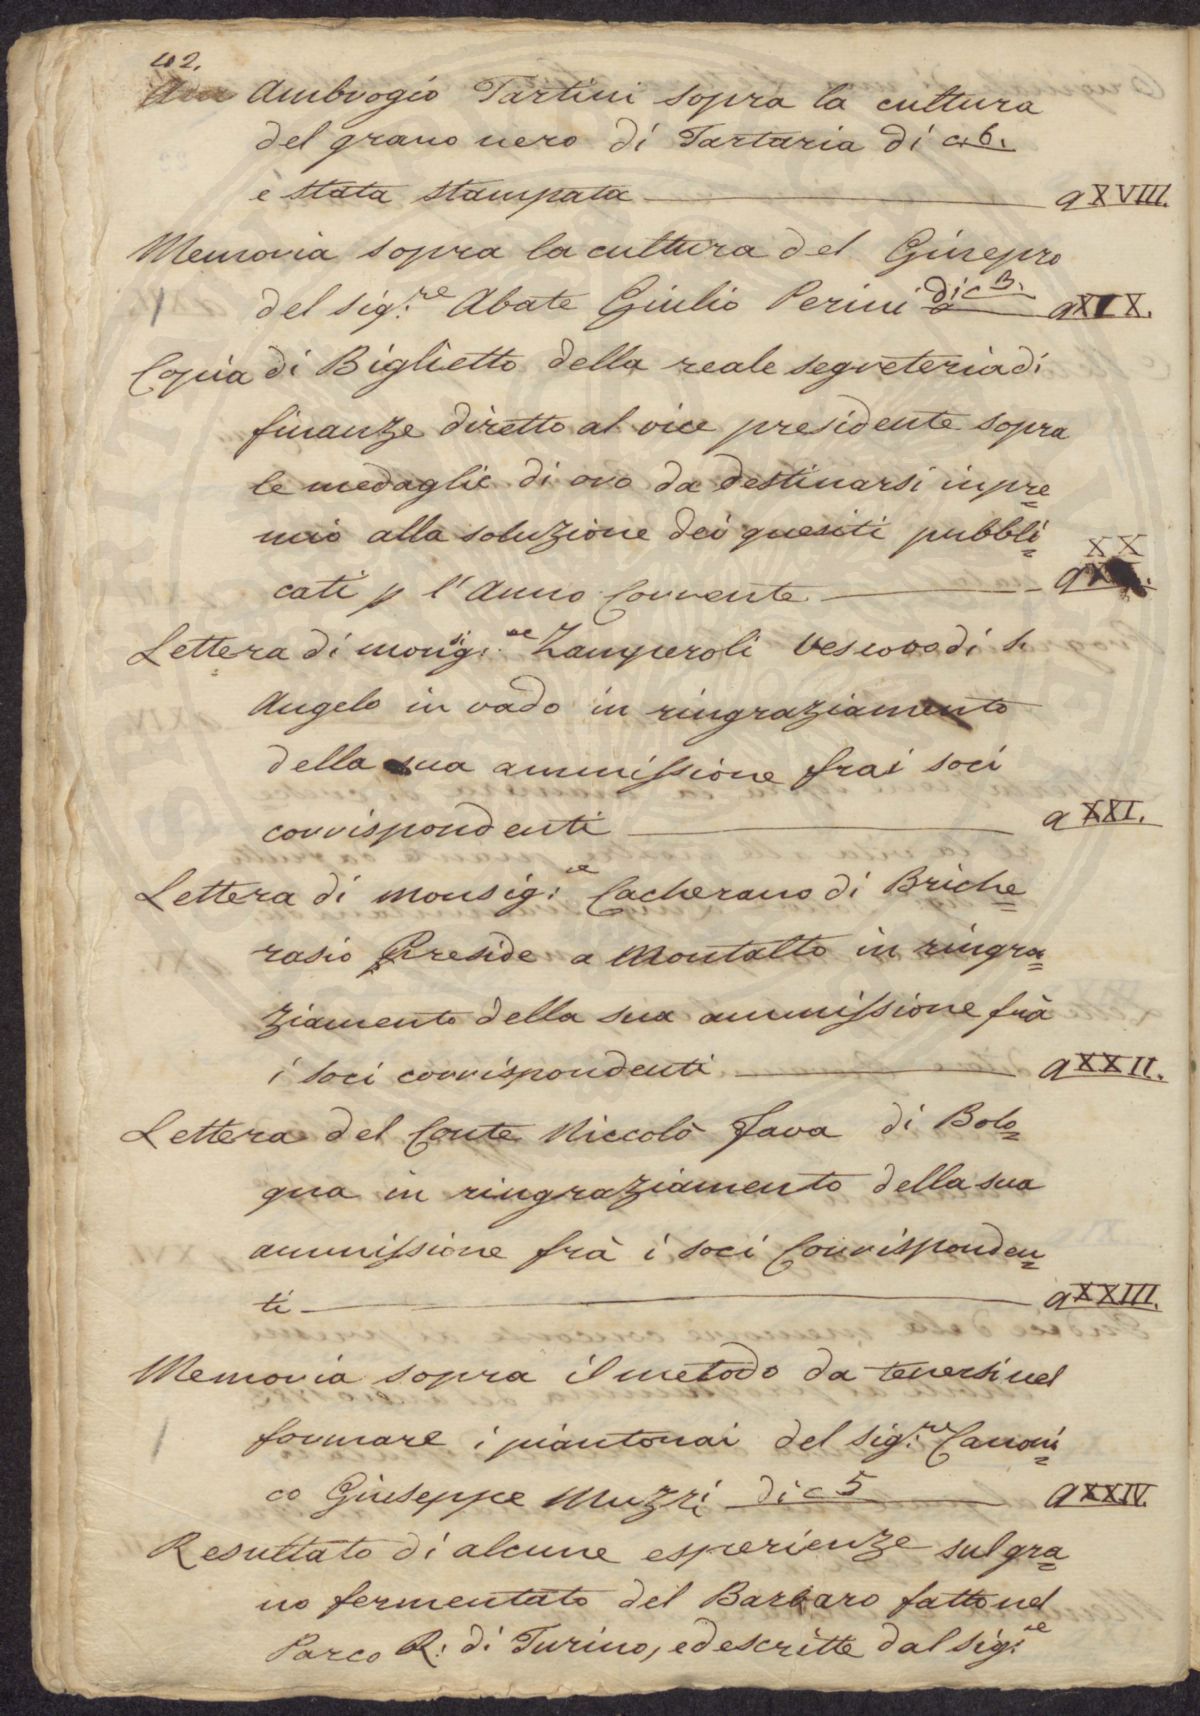 42.
Ambrogio Tartini sopra la cultura
del grano nero di Tartaria di c. 6.
è stata stampata a XVIII.
Memoria sopra la cultura del Ginepro
del sig:re Abate Giulio Perini di c 3. a XIX.
Copia di Biglietto della reale segreteria di
finanze diretto al vice presidente sopra
le medaglie di oro da destinarsi in pre=
mio alla soluzione dei quesiti pubbli=
cati p l'Anno Corrente a XX
Lettera di monsig:re Zamperoli Vescovo di S.
Angelo in vado in ringraziamento
della sua ammissione frai soci
corrispondenti a XXI.
Lettera di Monsig:re Cacherano di Briche=
rasio Preside a Montalto in ringra=
ziamento della sua ammissione frà
i soci corrispondenti a XXII.
Lettera del Conte Niccolò Fava di Bolo=
gna in ringraziamento della sua
ammissione frà i soci Corrisponden=
ti a XXIII.
Memoria sopra il metodo da tenersi nel
formare i piantonai del sig:re Canoni=
co Giuseppe Muzzi di c 5 a XXIV.
Resultato di alcune esperienze sul gra=
no fermentato del Barbaro fatto nel
Parco R: di Turino, e descritte dal sig:re